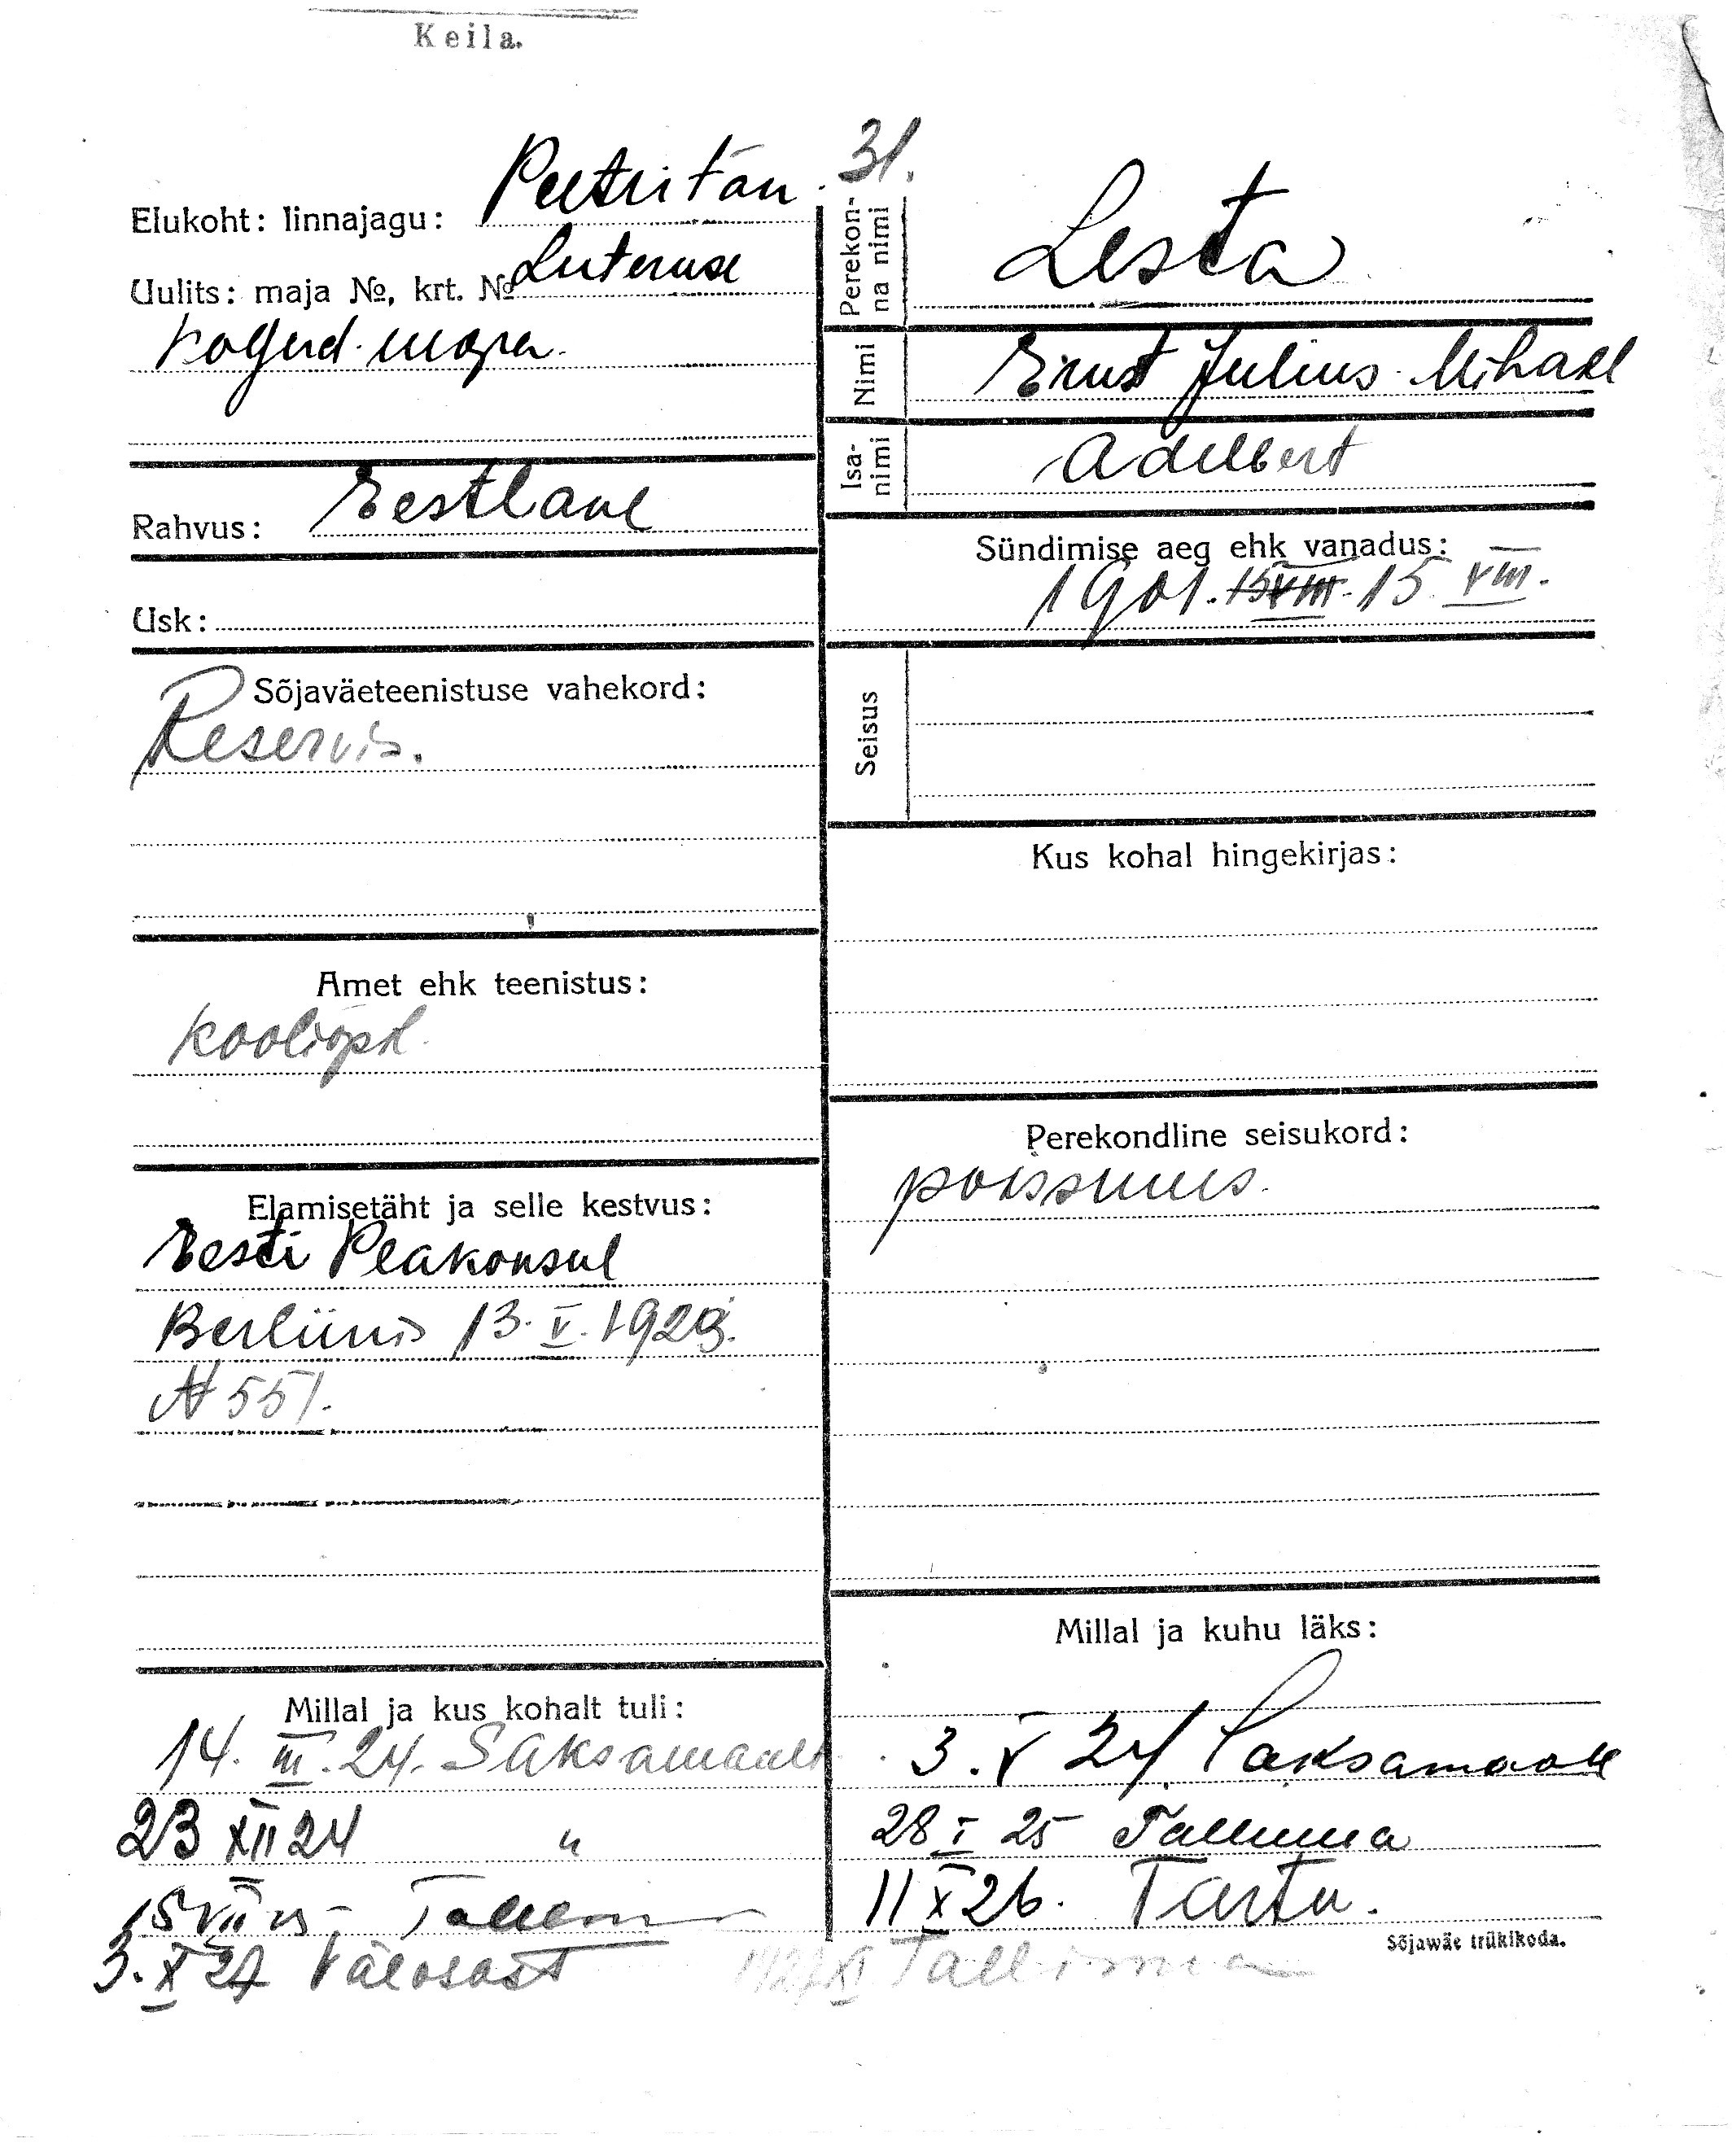 Keila.
31.
Elukoht: linnajagu: Peetri tän.
Uulits: maja №, krt. № Luteruse
kogud. maja.
Rahvus: Eestlane
Usk:
Sõjaväeteenistuse vahekord:
Reservis.
Amet ehk teenistus:
kooliõpil.
Elamisetäht ja selle kestvus:
Eesti Peakonsul
Berliinis 13. V. 1923.
№ 551.
Millal ja kus kohalt tuli:
14. III. 24. Saksamaalt
23 XII 24 "
15 VII 25 Tallinn
3. X 27 Väeosast
Perekonna nimi Lesta
Nimi Ernst Julius Mihael
Isanimi Adelbert
Sündimise aeg ehk vanadus:
1901. 15 VIII. 15. VIII.
Seisus
Kus kohal hingekirjas:
Perekondline seisukord:
poissmees.
Millal ja kuhu läks:
3. V 24 Saksamaale
28 I 25 Tallinna
11 X 26. Tartu.
Sõjawäe trükikoda.
XI Tallinna